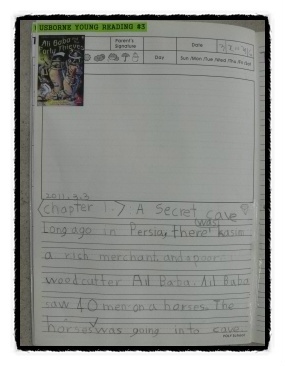 USBORNE YOUNG READING #3
Ali Baba
Forty Thieves
Parent's
Signature
Date
Day
Sun /Mon /Tue /Wed /Thu /Fri /Sat
2011.3.3
<chapter 1.> A Secret cave
Long ago in Persia, there was kasim
a rish merchant and a poor
woodcutter Ali Baba. Ali Baba
saw 40 men on a horses. The
horses was going into cave.